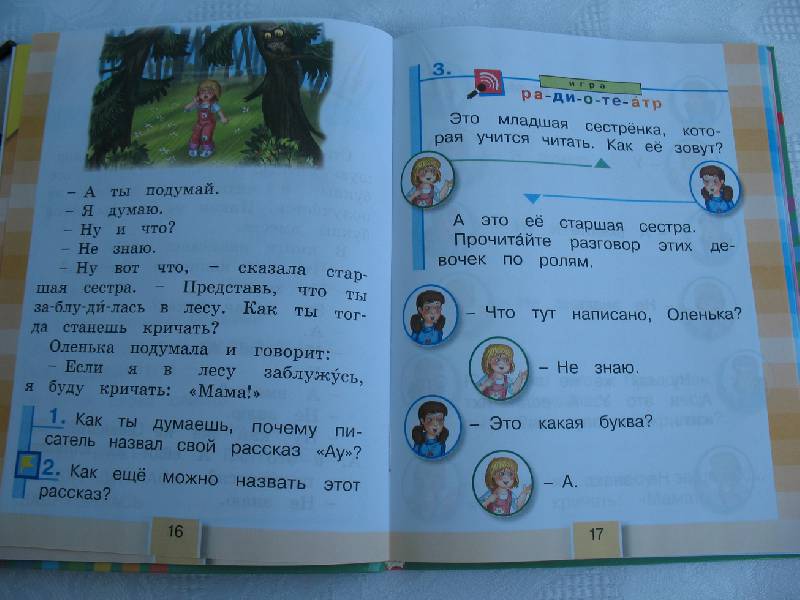 – А ты подумай.
– Я думаю.
– Ну и что?
– Не знаю.
– Ну вот что, – сказала стар-
шая сестра. – Представь, что ты
за-блу-ди́-лась в лесу. Как ты тог-
да станешь кричать?
Оленька подумала и говорит:
– Если я в лесу заблужу́сь,
я буду кричать: «Мама!»
1. Как ты думаешь, почему пи-
сатель назвал свой рассказ «Ау»?
2. Как ещё можно назвать этот
рассказ?
16
3.
игра
ра-ди-о-те-а́тр
Это младшая сестрёнка, кото-
рая учится читать. Как её зовут?
А это её старшая сестра.
Прочита́йте разговор этих де-
вочек по ролям.
– Что тут написано, Оленька?
– Не знаю.
– Это какая буква?
– А.
17